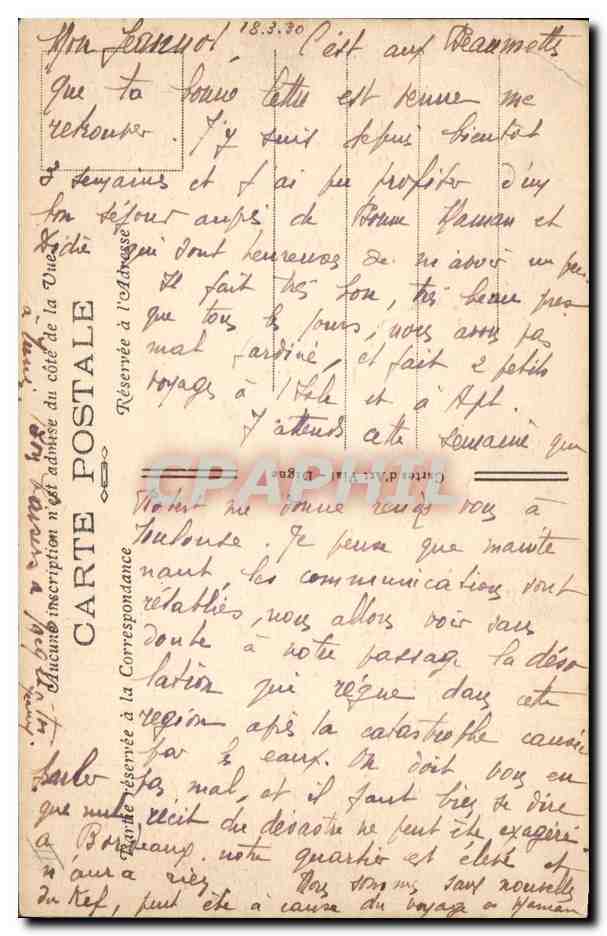 18.3.30
Mon Jeannot, C'est aux Beaumetts
que ta bonne lettre est venue me
retrouver. J'y suis depuis bientôt
2 semaines et j'ai pu profiter d'un
bon séjour auprès de Bonne Maman et
qui sont heureuses de m'avoir un peu.
Il fait très bon, très beau pres
que tous les jours, nous avons pas
mal jardiné, et fait 2 petits
voyages à l'Isle et à Apt.
J'attends cette semaine que
Robert me donne rendez vous à
Toulouse. Je pense que mainte
nant, les communications sont
rétablies, nous allons voir sans
doute à notre passage la déso
lation qui règne dans cette
région après la catastrophe causée
par les eaux. On doit vous en
parler pas mal, et il faut bien se dire
que nul récit du désastre ne peut être exagéré.
a Bordeaux notre quartier est élevé et
n'aura rien Nous sommes sans nouvelles
du Kef, peut être à cause du voyage de Maman
CARTE POSTALE
Aucune inscription n'est admise du côté de la Vue
Partie réservée à la Correspondance
Réservée à l'Adresse
Cartes d'Art Vial - Digne
CPARPHIL